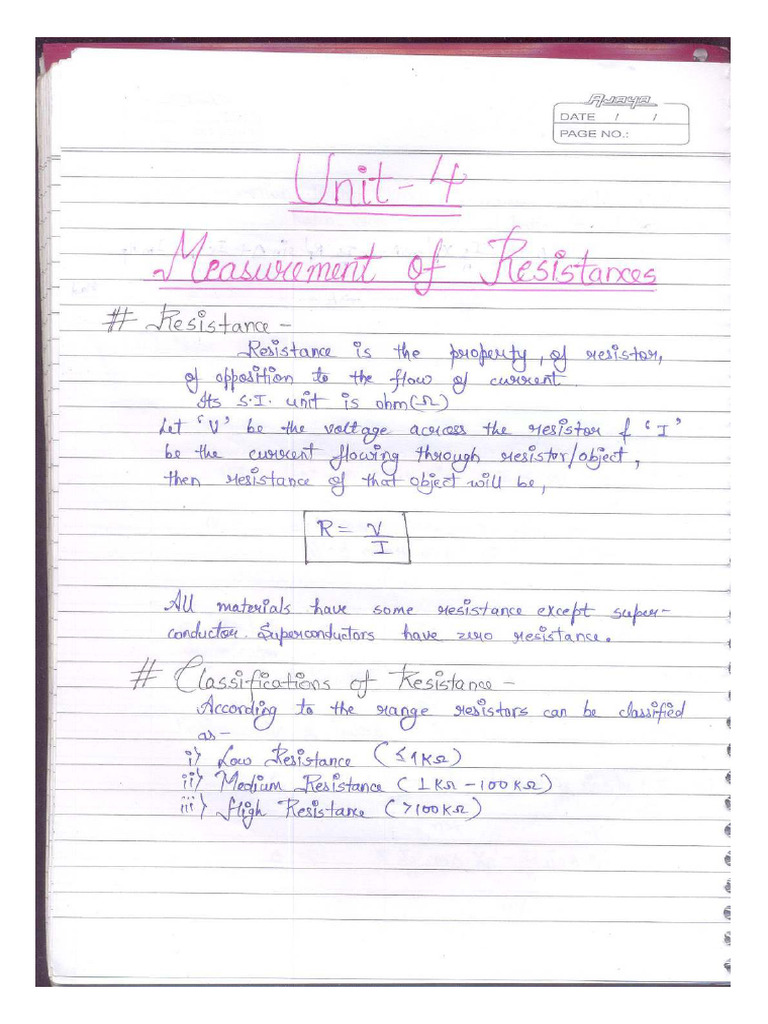 Ajaya
DATE / /
PAGE NO.:
Unit-4
Measurement of Resistances
# Resistance -
Resistance is the property, of resistor,
of opposition to the flow of current.
Its S.I. unit is ohm(Ω)
Let 'V' be the voltage across the resistor & 'I'
be the current flowing through resistor/object,
then resistance of that object will be,
R = V/I
All materials have some resistance except super-
conductor. Superconductors have zero resistance.
# Classifications of Resistance -
According to the range resistors can be classified
as -
i) Low Resistance (≤1KΩ)
ii) Medium Resistance (1KΩ - 100KΩ)
iii) High Resistance (>100KΩ)